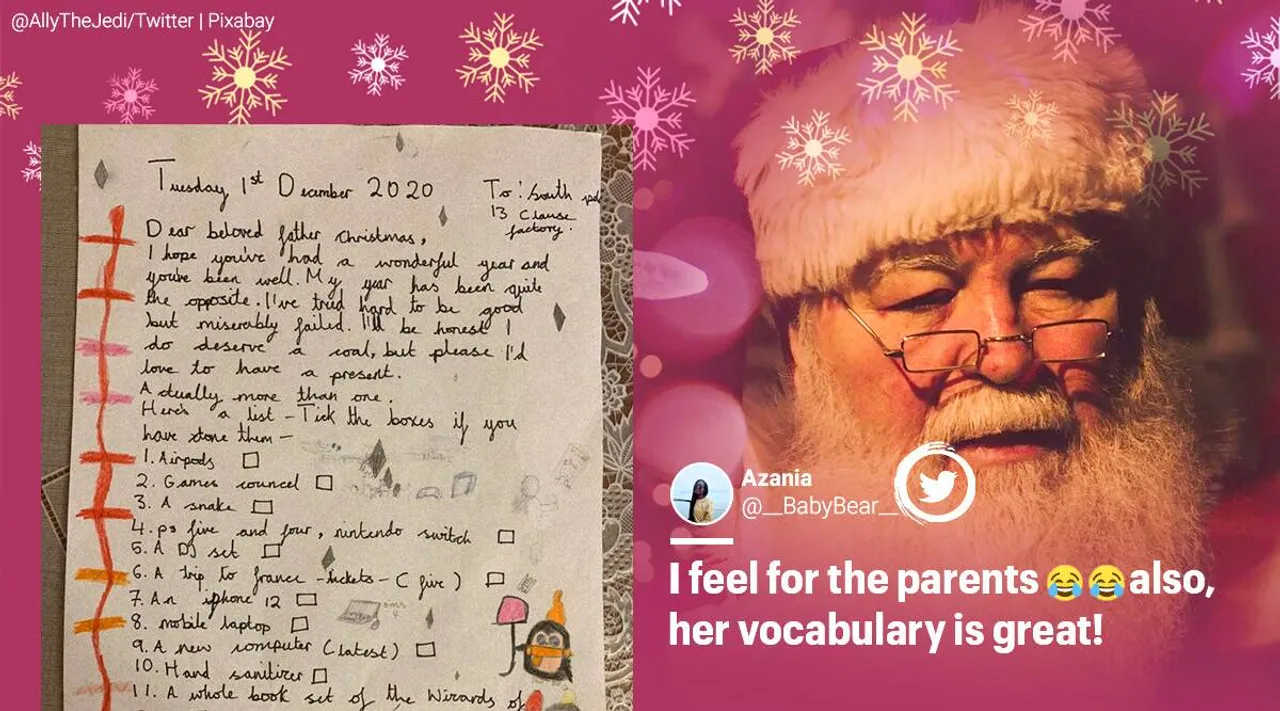 @AllyTheJedi/Twitter | Pixabay
Tuesday 1st December 2020
To: South
13 Clause
factory.
Dear beloved father Christmas,
I hope you've had a wonderful year and
you've been well. My year has been quite
the opposite. I've tried hard to be good
but miserably failed. I'll be honest I
do deserve a coal, but please I'd
love to have a present.
Actually more than one.
Here's a list - Tick the boxes if you
have done them -
1. Airpods
2. Games councel
3. A snake
4. ps five and four, nintendo switch
5. A DJ set
6. A trip to france - tickets - (five)
7. An iphone 12
8. mobile laptop
9. A new computer (latest)
10. Hand sanitizer
11. A whole book set of the Wizards of
Azania
@__BabyBear__
I feel for the parents 😂😂 also,
her vocabulary is great!